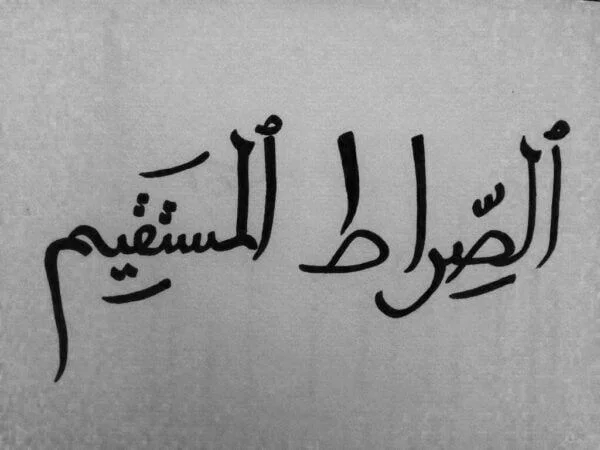 ٱلصِّراط ٱلمستَقِيم